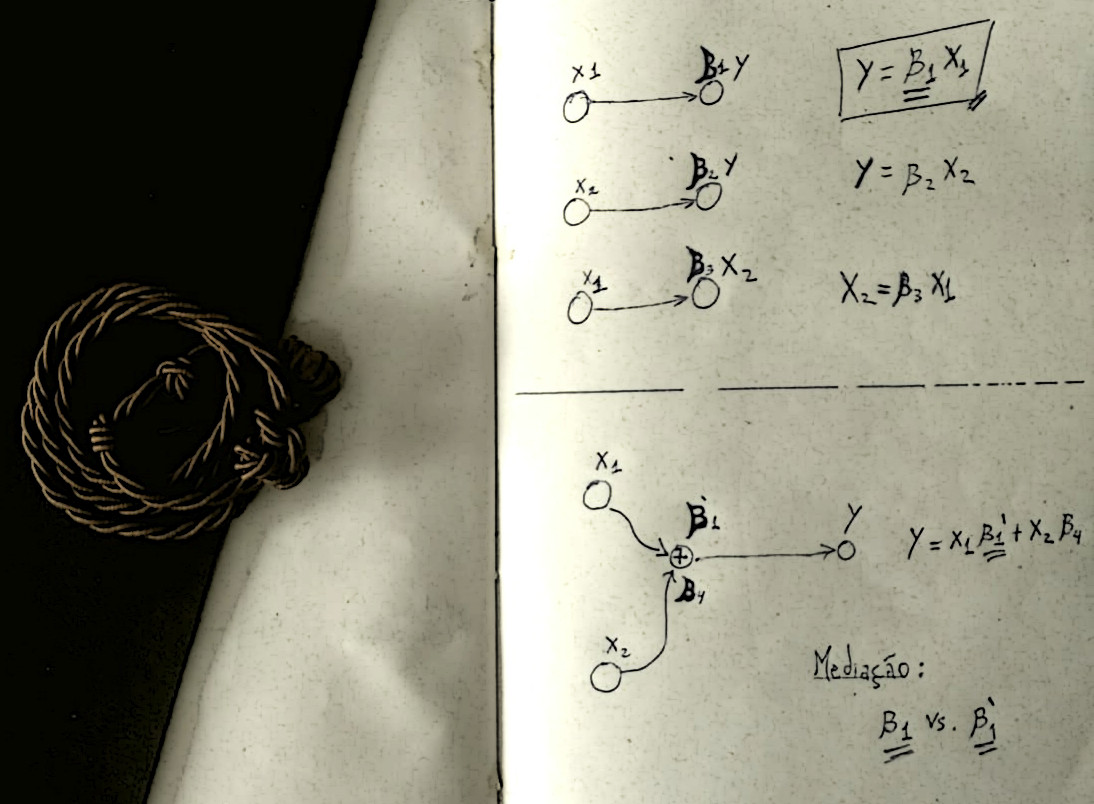 X1 β1 Y Y = β1 X1
X2 β2 Y Y = β2 X2
X1 β3 X2 X2 = β3 X1
X1
β1' Y Y = X1 β1' + X2 β4
+
β4
X2
Mediação:
β1 vs. β1'